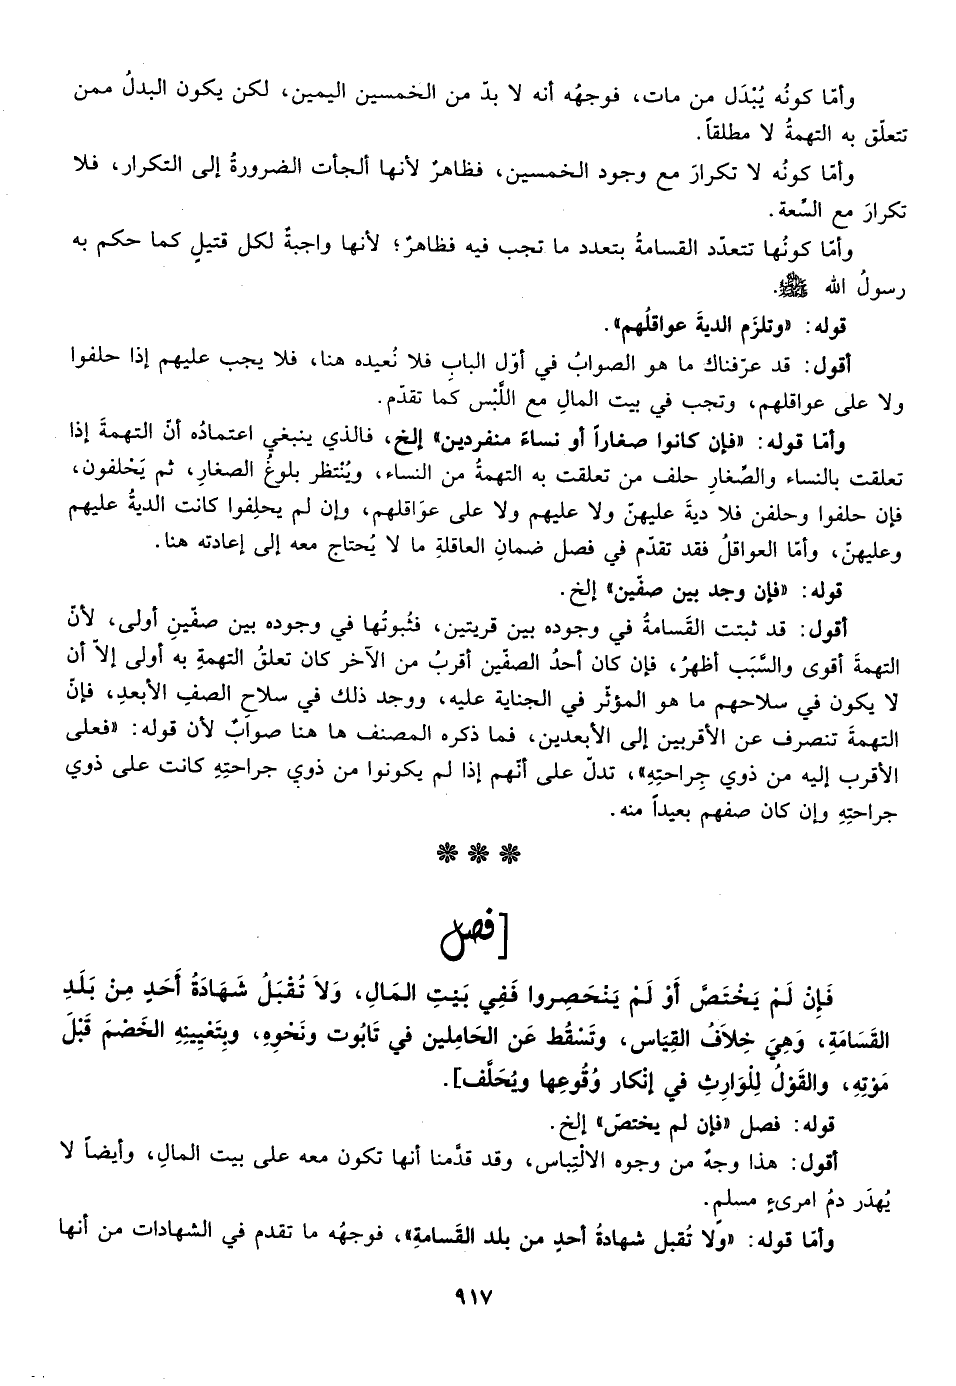 وأمّا كونُه يُبْدَل من مات، فوجهُه أنه لا بدّ من الخمسين اليمين، لكن يكون البدلُ ممن
تتعلّق به التهمةُ لا مطلقاً.
وأمّا كونُه لا تكرارَ مع وجود الخمسين، فظاهرٌ لأنها ألجأت الضرورةُ إلى التكرار، فلا
تكرارَ مع السَّعة.
وأمّا كونُها تتعدّد القسامةُ بتعدد ما تجب فيه فظاهرٌ؛ لأنها واجبةٌ لكل قتيلٍ كما حكم به
رسولُ الله ﷺ.
قوله: «وتلزَم الديةَ عواقلُهم».
أقول: قد عرّفناك ما هو الصوابُ في أوّل البابِ فلا نُعيده هنا، فلا يجب عليهم إذا حلفوا
ولا على عواقلهم، وتجب في بيت المالِ مع اللَّبْس كما تقدّم.
وأمّا قوله: «فإن كانوا صغاراً أو نساءً منفردين» إلخ، فالذي ينبغي اعتمادُه أنّ التهمةَ إذا
تعلقت بالنساء والصِّغارِ حلف من تعلقت به التهمةُ من النساء، ويُنْتظر بلوغُ الصغارِ، ثم يَحْلفون،
فإن حلفوا وحلفن فلا ديةَ عليهنّ ولا عليهم ولا على عوَاقلهم، وإن لم يحلِفوا كانت الديةُ عليهم
وعليهنّ، وأمّا العواقلُ فقد تقدّم في فصل ضمان العاقلةِ ما لا يُحتاج معه إلى إعادته هنا.
قوله: «فإن وجد بين صفّين» إلخ.
أقول: قد ثبتت القَسامةُ في وجوده بين قريتين، فثُبوتُها في وجوده بين صفّينِ أولى، لأنّ
التهمةَ أقوى والسَّبَب أظهرُ، فإن كان أحدُ الصفّين أقربُ من الآخر كان تعلقُ التهمةِ به أولى إلاّ أن
لا يكون في سلاحهم ما هو المؤثّر في الجناية عليه، ووجد ذلك في سلاحِ الصفِ الأبعدِ، فإنّ
التهمةَ تنصرف عن الأقربين إلى الأبعدين، فما ذكره المصنف ها هنا صوابٌ لأن قوله: «فعلى
الأقرب إليه من ذوي جِراحتِهِ»، تدلّ على أنّهم إذا لم يكونوا من ذوي جراحتِهِ كانت على ذوي
جراحتِهِ وإن كان صفهم بعيداً منه.
❊ ❊ ❊
[فصل
فَإِنْ لَمْ يَخْتَصَّ أَوْ لَمْ يَنْحَصِروا فَفِي بَيْتِ المَالِ، وَلاَ تُقْبَلُ شَهَادَةُ أَحَدٍ مِنْ بَلَدِ
القَسَامَةِ، وَهِيَ خِلاَفُ القِيَاس، وتَسْقُط عَن الحَامِلين في تَابُوت ونَحْوِهِ، وبِتَعْيِينِهِ الخَصْمَ قَبْلَ
مَوْتِهِ، والقَوْلُ لِلْوَارِثِ في إنْكار وُقُوعِها ويُحَلَّف].
قوله: فصل «فإن لم يختصّ» إلخ.
أقول: هذا وجهٌ من وجوه الالْتِباس، وقد قدَّمنا أنها تكون معه على بيت المالِ، وأيضاً لا
يُهدَر دمُ امرىءٍ مسلمٍ.
وأمّا قوله: «ولا تُقبل شهادةُ أحدٍ من بلد القَسامةِ»، فوجهُه ما تقدم في الشهادات من أنها
٩١٧